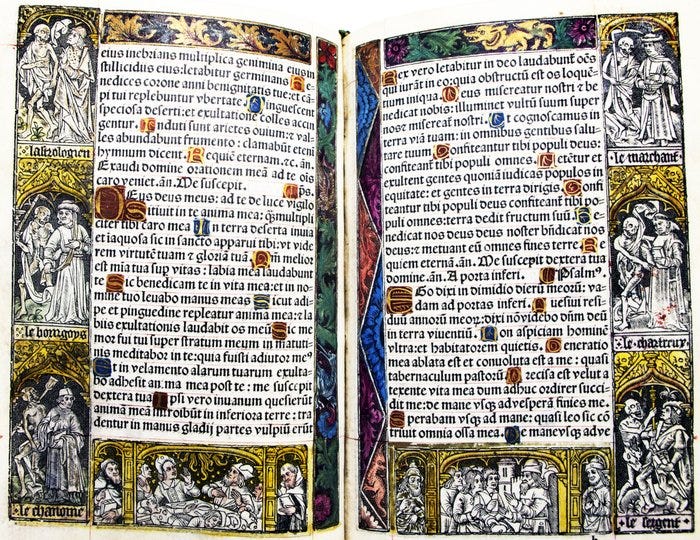 eius inebrians multiplica genimina eius in
stillicidiis eius: letabitur germinans Be-
nedices corone anni benignitatis tue: et cā-
pi tui replebuntur vbertate. Pinguescent
speciosa deserti: et exultatione colles accin
gentur. Induti sunt arietes ouium: ⁊ val-
les abundabunt frumento: clamabunt etenim
hymnum dicent. Requiē eternam. ⁊c. ān.
Exaudi domine orationem meā ad te oīs
caro veniet. ān. Me suscepit. Ps.
DEus deus meus: ad te de luce vigilo
Sitiuit in te anima mea: ꝙ̄ multipli
citer tibi caro mea In terra deserta inuia
et iaquosa sic in sancto apparui tibi: vt vide
rem virtutē tuam ⁊ gloriā tuā. Qm̄ in melior
est mīa tua sup vitas: labia mea laudabunt
te Sic benedicam te in vita mea: et in no-
mine tuo leuabo manus meas Sicut adi-
pe et pinguedine repleatur anima mea: ⁊ la
biis exultationis laudabit os meū Sic me
mor fui tui super stratum meum in matuti-
nis meditabor in te: quia fuisti adiutor meꝰ
Et in velamento alarum tuarum exulta-
bo adhesit an: ma mea post te: me suscepit
dextera tua Ipsi vero inuanum quesierūt
animā meā introibūt in inferiora terre: tra
dentur in manus gladij partes vulpiū erūt
lastrologien
le bourgoys
le chanoine
Rex vero letabitur in deo laudabunt oēs
qui iurāt in eo: quia obstructū est os loquē-
tium iniqua. Deus misereatur nostri ⁊ be
nedicat nobis: illuminet vultū suum super
nos ⁊ misereat̄ nostri. Ut cognoscamus in
terra viā tuam: in omnibus gentibus salu-
tare tuum Confiteantur tibi populi deus:
confiteant̄ tibi populi omnes. Letētur et
exultent gentes quoniā iudicas populos in
equitate: et gentes in terra dirigis. Confi
teantur tibi populi deus confiteant̄ tibi po-
puli omnes: terra dedit fructum suū. Be-
nedicat nos deus deus noster bn̄dicat nos
deus: et metuant eū omnes fines terre. Re
quiem eternam. ān. Me suscepit dextera tua
domine. ān. A porta inferi. Psalmꝰ.
EGo dixi in dimidio dierū meoꝝ: va-
dam ad portas inferi. Quesiui resi-
duū annorū meoꝝ: dixi nō videbo dn̄m deū
in terra viuentiū. Non aspiciam hominē
vltra: et habitatorem quietis. Generatio
mea ablata est et conuoluta est a me: quasi
tabernaculum pastorū Precisa est velut a
texente vita mea dum adhuc ordirer succi-
dit me: de mane vsꝙ ad vesperā finies me.
Sperabam vsꝙ ad mane: quasi leo sic cō
triuit omnia ossa mea. De mane vsꝙ ad ve
le marchant
le chartreux
le sergent